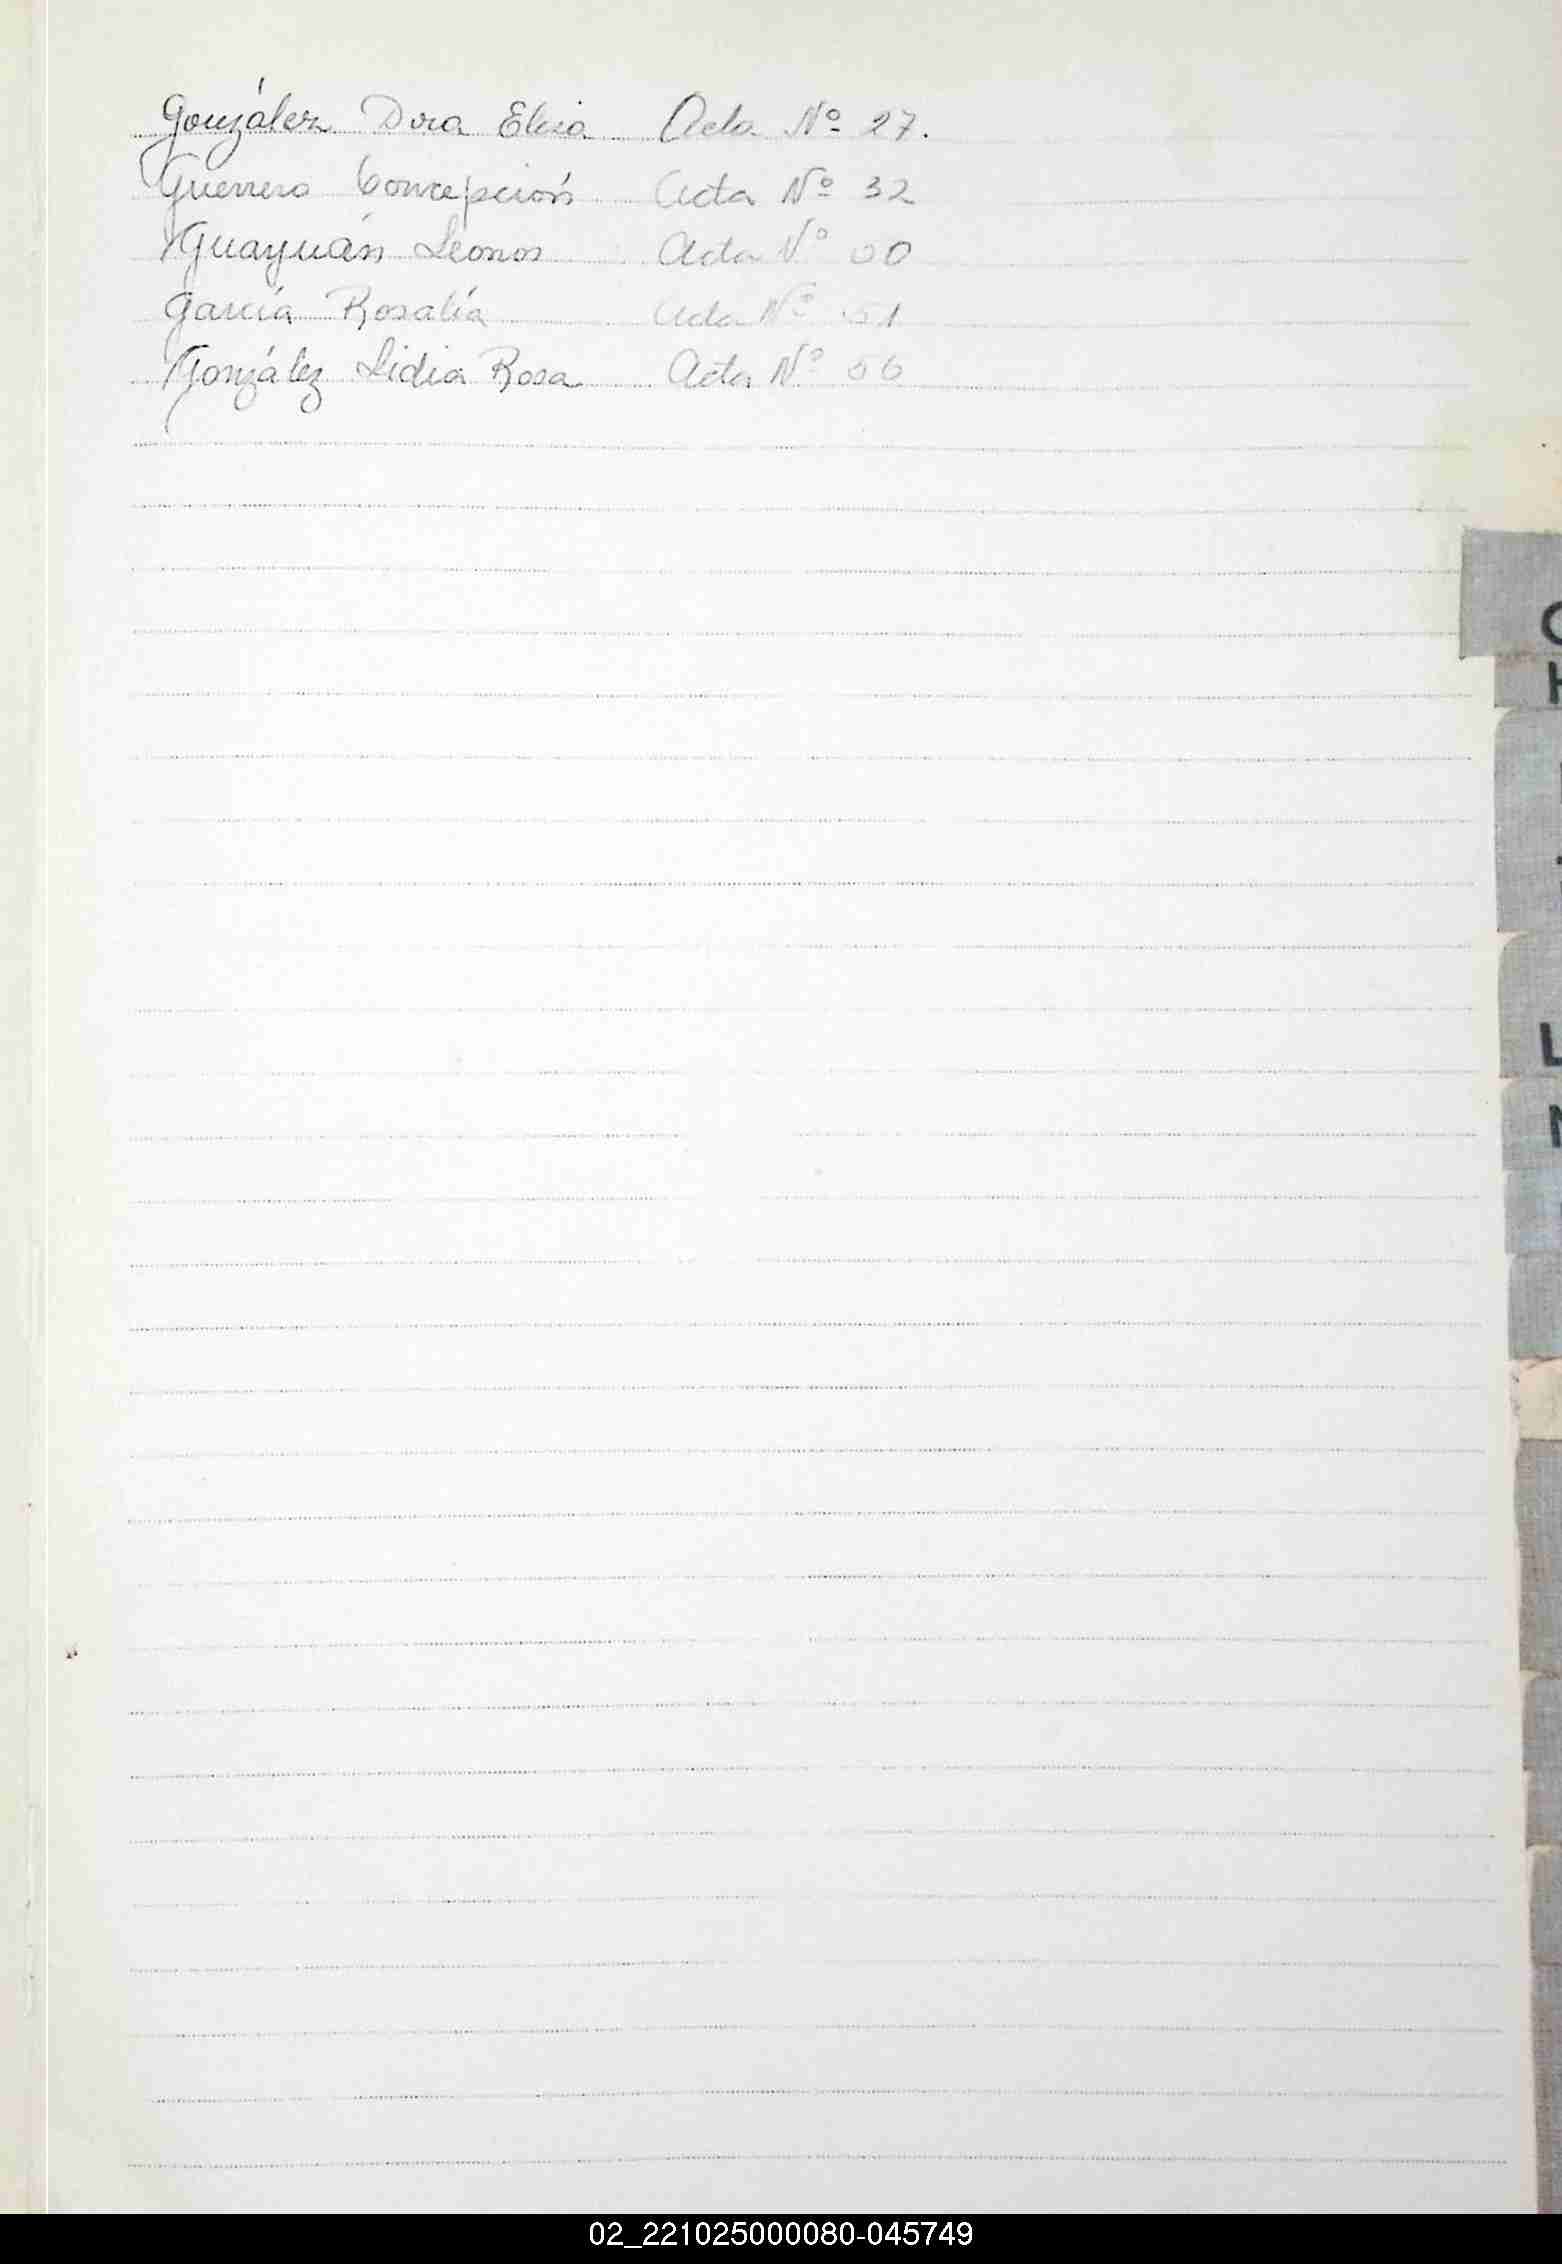 González Dora Elcia Acta Nº 27.
Guerrero Concepción Acta Nº 32
Guayuán Leonor Acta Nº
García Rosalía Acta Nº 51
González Lidia Rosa Acta Nº 56
G
H
L
02_221025000080-045749